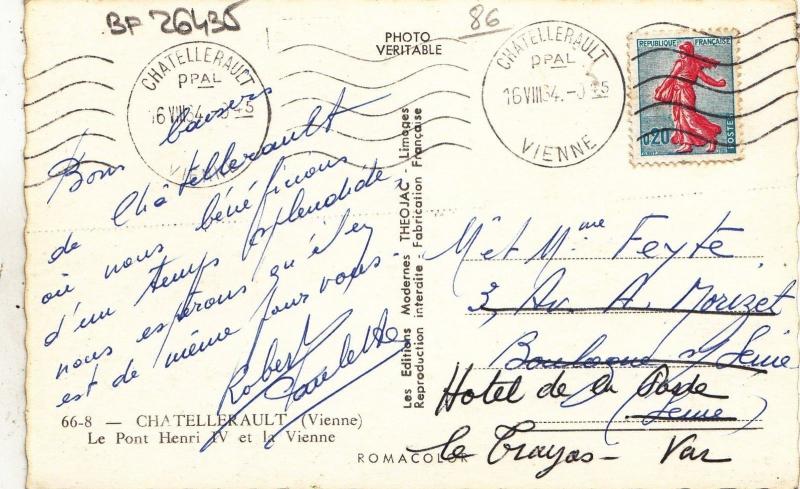 BF 26435
86
PHOTO
VERITABLE
CHATELLERAULT
PPAL
16 VIII 34. -0 45
VIENNE
CHATELLERAULT
PPAL
16 VIII 34. -0 45
VIENNE
REPUBLIQUE FRANÇAISE
0,20
POSTES
Bons baisers
de Châtellerault
où nous bénéficions
d'un temps splendide,
nous espérons qu'il en
est de même pour vous.
Robert
Paulette
66-8 — CHATELLERAULT (Vienne)
Le Pont Henri IV et la Vienne
Les Editions Modernes THEOJAC - Limoges
Reproduction interdite Fabrication Française
ROMACOLOR
M. et Mme Feyte
3, Av. A. Morizet
Boulogne s/ Seine
(Seine)
Hotel de la Poste
le Trayas - Var